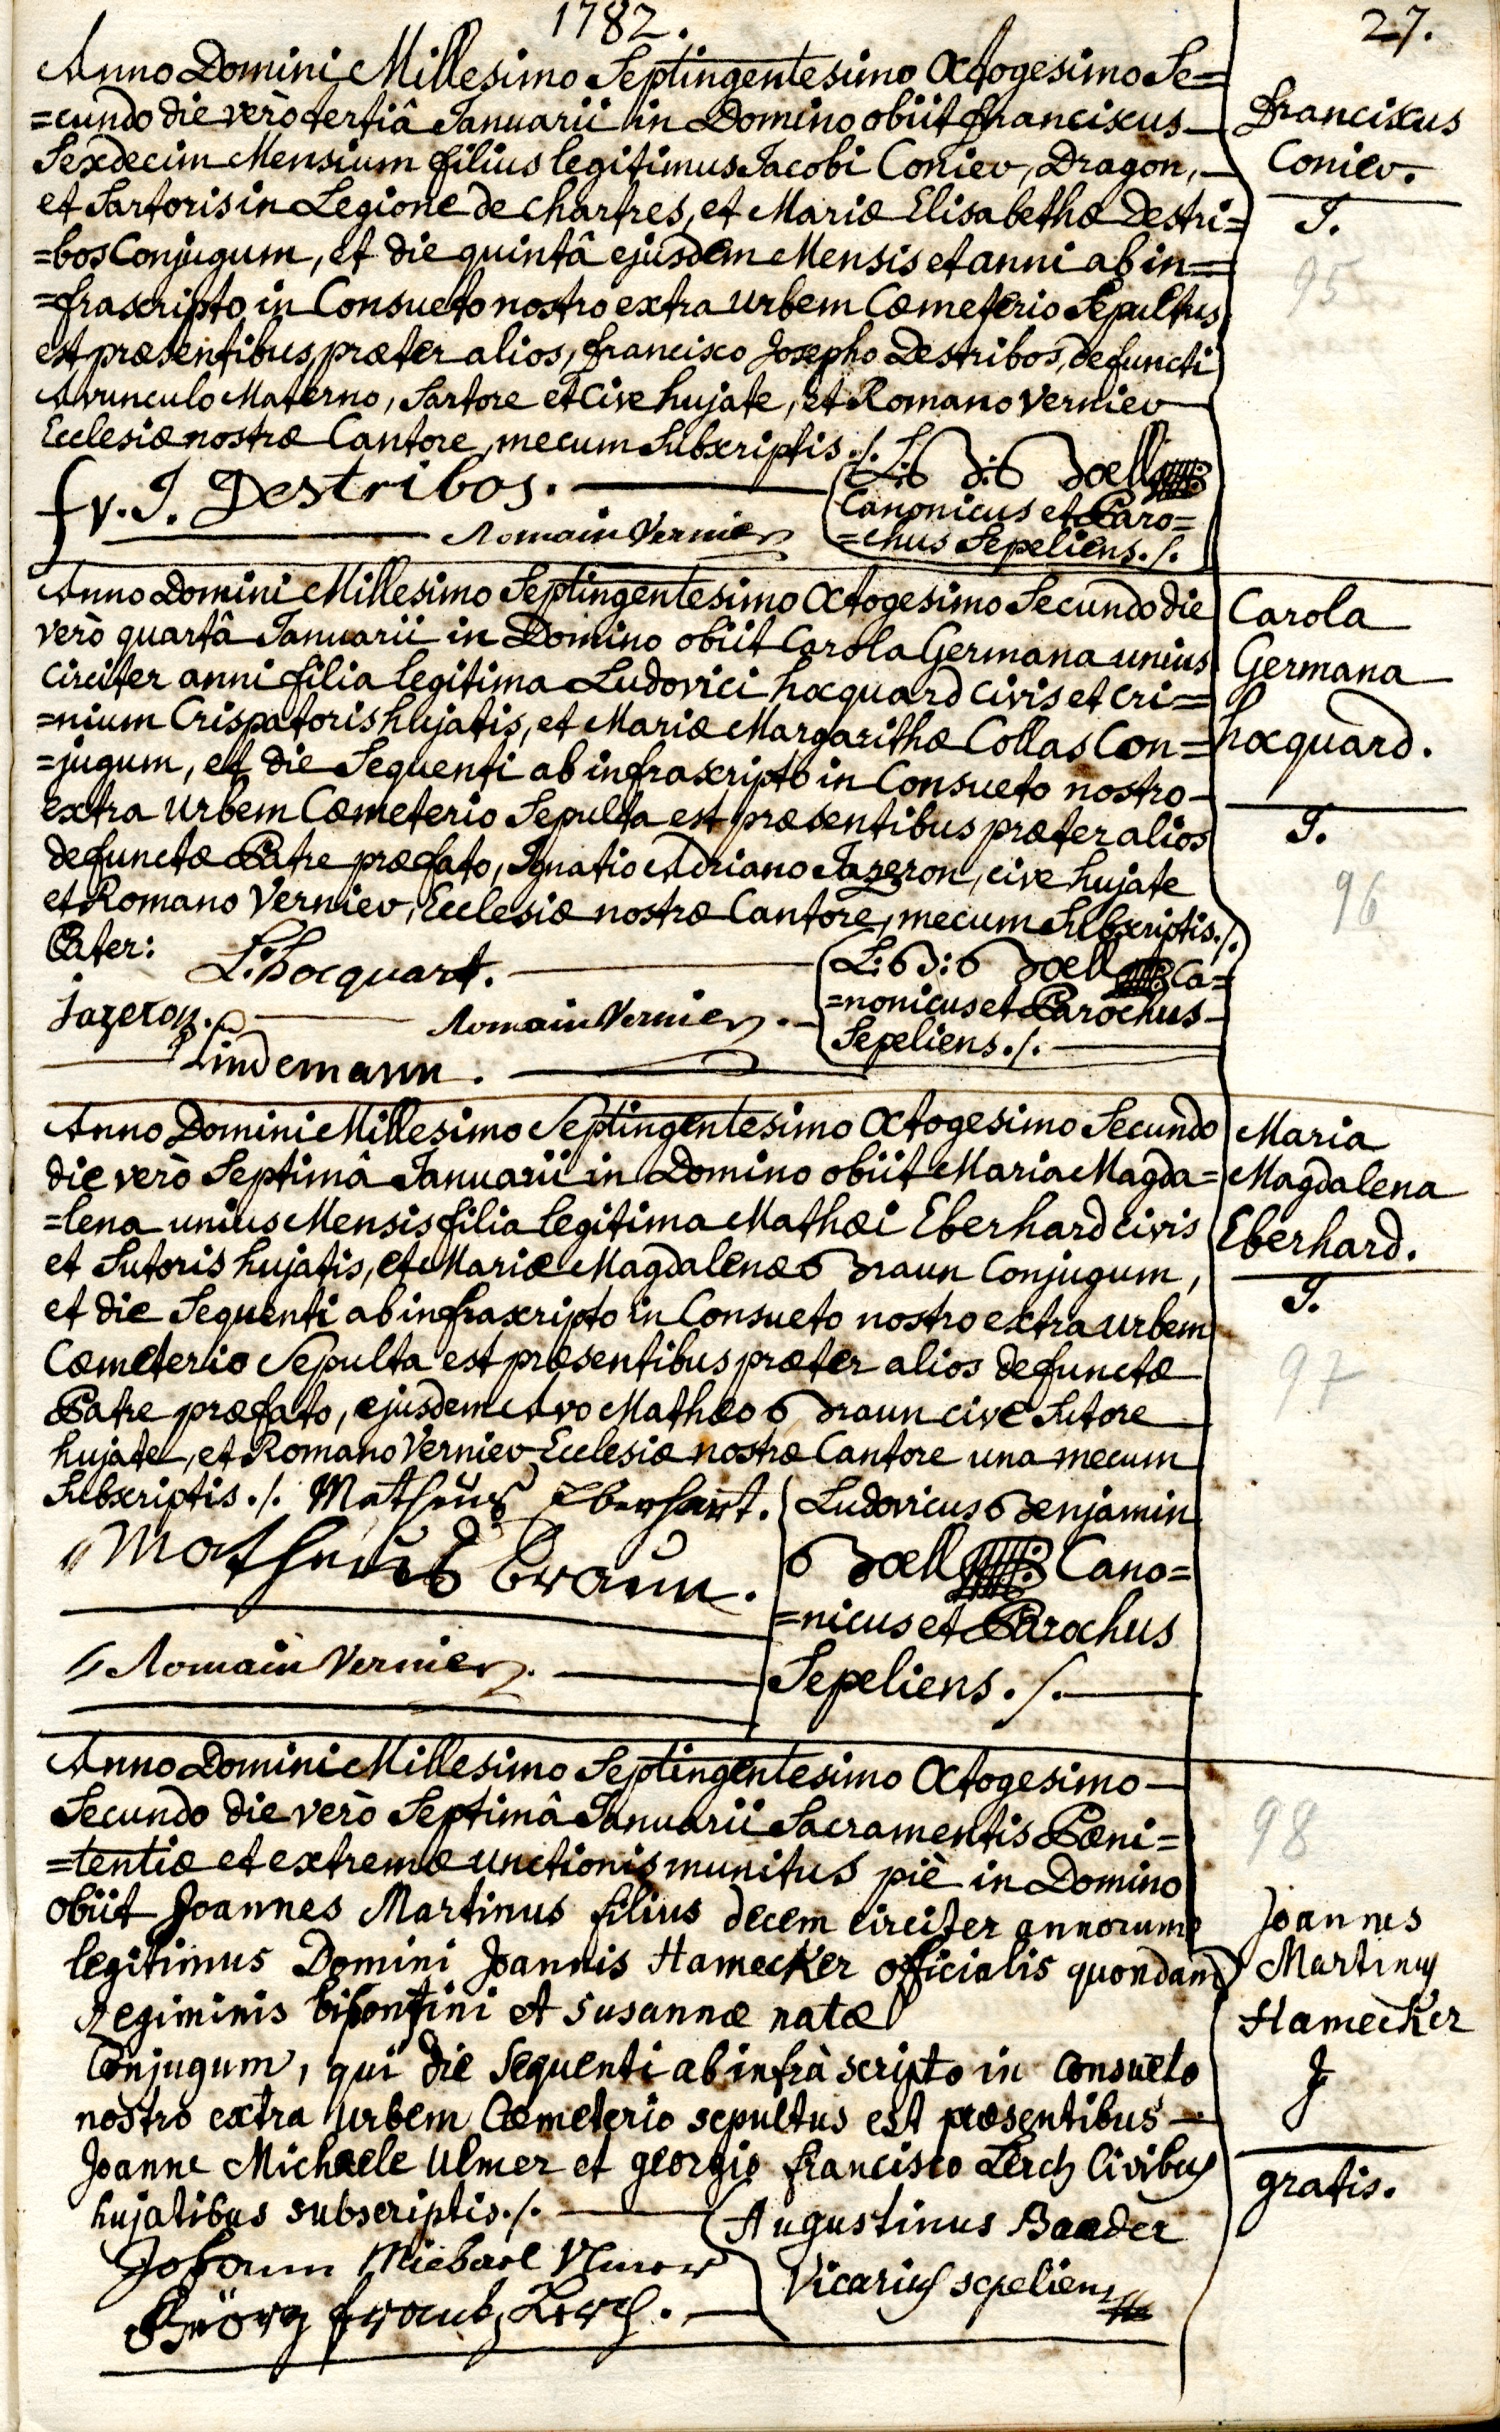 1782.
27.
Anno Domini Millesimo Septingentesimo Octogesimo Se=
=cundo die verò tertiâ Januarii in Domino obiit franciscus
Sexdecim Mensium filius legitimus Jacobi Coniev, Dragon,
et Sartoris in Legione de chartres, et Mariæ Elisabethæ Destri=
=bos Conjugum, et die quintâ ejusdem Mensis et anni ab in=
=frascripto in Consueto nostro extra urbem Cœmeterio Sepultus
est præsentibus præter alios, francisco Josepho Destribos, defuncti
Avunculo Materno, Sartore et Cive hujate, et Romano Verniev
Ecclesiæ nostræ Cantore, mecum Subscriptis ./.
franciscus
Coniev.
J.
95
fr. J. Destribos.
L: B: Boell
Canonicus et Paro=
=chus Sepeliens ./.
Romain Vernier
Anno Domini Millesimo Septingentesimo Octogesimo Secundo die
verò quartâ Januarii in Domino obiit Carola Germana unius
circiter anni filia legitima Ludovici hocquard civis et cri=
=nium Crispatoris hujatis, et Mariæ Margarithæ Collas Con=
=jugum, et die Sequenti ab infrascripto in Consueto nostro
extra urbem Cœmeterio Sepulta est præsentibus præter alios
defunctæ Patre præfato, Ignatio Adriano Jazeron, cive hujate
et Romano Verniev, Ecclesiæ nostræ Cantore, mecum Subscriptis ./.
Carola
Germana
hocquard.
J.
96
Pater: L. hocquart.
L: B: Boell Ca=
=nonicus et Parochus
Sepeliens ./.
jazeron.
Romain Vernier.
Lindemann.
Anno Domini Millesimo Septingentesimo Octogesimo Secundo
die verò Septimâ Januarii in Domino obiit Maria Magda=
=lena unius Mensis filia legitima Mathæi Eberhard civis
et Sutoris hujatis, et Mariæ Magdalenæ Braun Conjugum,
et die Sequenti ab infrascripto in Consueto nostro extra urbem
Cœmeterio Sepulta est præsentibus præter alios defunctæ
Patre præfato, ejusdem Avo Mathæo Braun cive Sutore
hujate, et Romano Verniev Ecclesiæ nostræ Cantore una mecum
Subscriptis ./. Matheus Eberhart.
Maria
Magdalena
Eberhard.
J.
97
Ludovicus Benjamin
Boell Cano=
=nicus et Parochus
Sepeliens ./.
Matheus Braun.
Romain Vernier.
Anno Domini Millesimo Septingentesimo Octogesimo
Secundo die verò Septimâ Januarii Sacramentis Pœni=
=tentiæ et extremæ unctionis munitus piè in Domino
obiit Joannes Martinus filius decem circiter annorum
legitimus Domini Joannis Hamecker officialis quondam
regiminis bipontini et Susannæ natæ
Conjugum, qui die Sequenti ab infrà scripto in consueto
nostro extra urbem Cœmeterio sepultus est præsentibus
Joanne Michaele Ulmer et georgio francisco Lerch Civibus
hujatibus subscriptis ./.
98
Joannes
Martinus
Hamecker
J
gratis.
Augustinus Baader
Vicarius sepeliens
Johann Michael Ulmer
Geörg frantz Lerch.